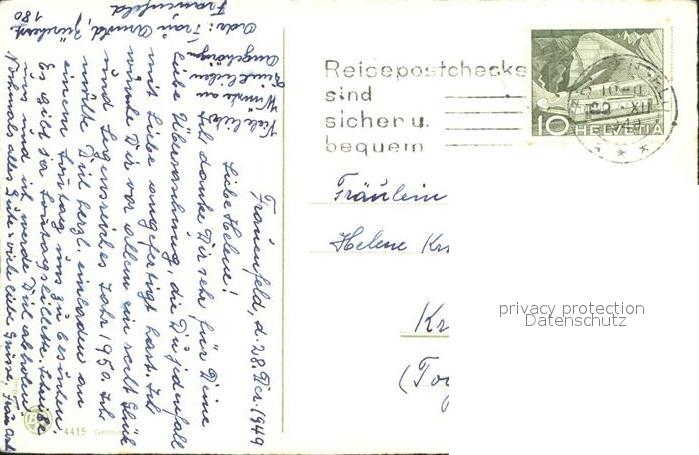 Frauenfeld, d. 28. Dez. 1949
Liebe Helene!
Ich danke Dir sehr für Deine
liebe Überraschung, die Du jedenfalls
mit Liebe angefertigt hast. Ich
wünsche Dir vor allem ein recht Glück
und segensreiches Jahr 1950. Ich
möchte Dich herzl. einladen an
einem Sonntag uns zu besuchen.
Es gibt ja Sonntagsbillette. Schreibe
uns und ich werde Dich abholen.
Nochmals alles Gute, viele liebe Grüsse, Frau
Viele liebe
Wünsche an
Deine lieben
Angehörigen
Adr: Frau Arnold, Zürcherstr
180
Frauenfeld
4415
Reisepostchecks
sind
sicher u.
bequem
10 HELVETIA
XII
Fräulein
Helene
Kr
(Tog
privacy protection
Datenschutz